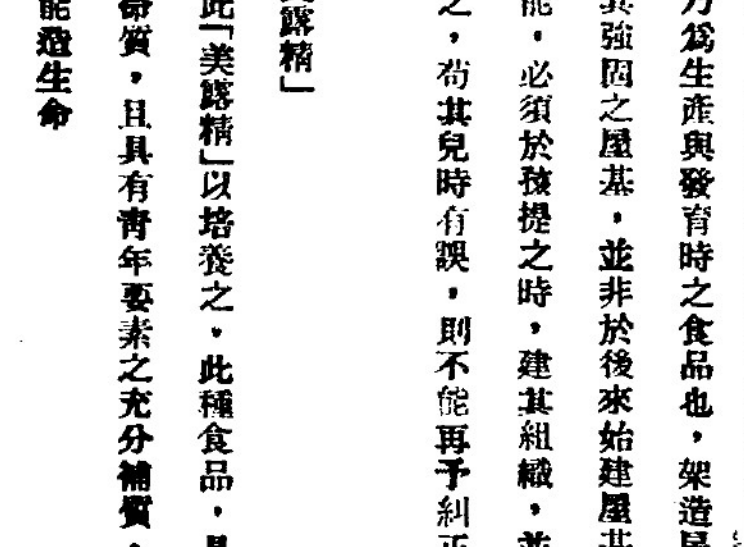 乃爲生產與發育時之食品也，架造屋
其強固之屋基，並非於後來始建屋基
能，必須於孩提之時，建其組織，並
之，苟其兒時有誤，則不能再予糾正
美露精」
此「美露精」以培養之，此種食品，具
命質，且具有青年要素之充分補質，
能造生命